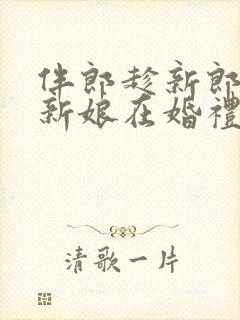 伴郎趁新郎
新娘在婚禮
清歌一片